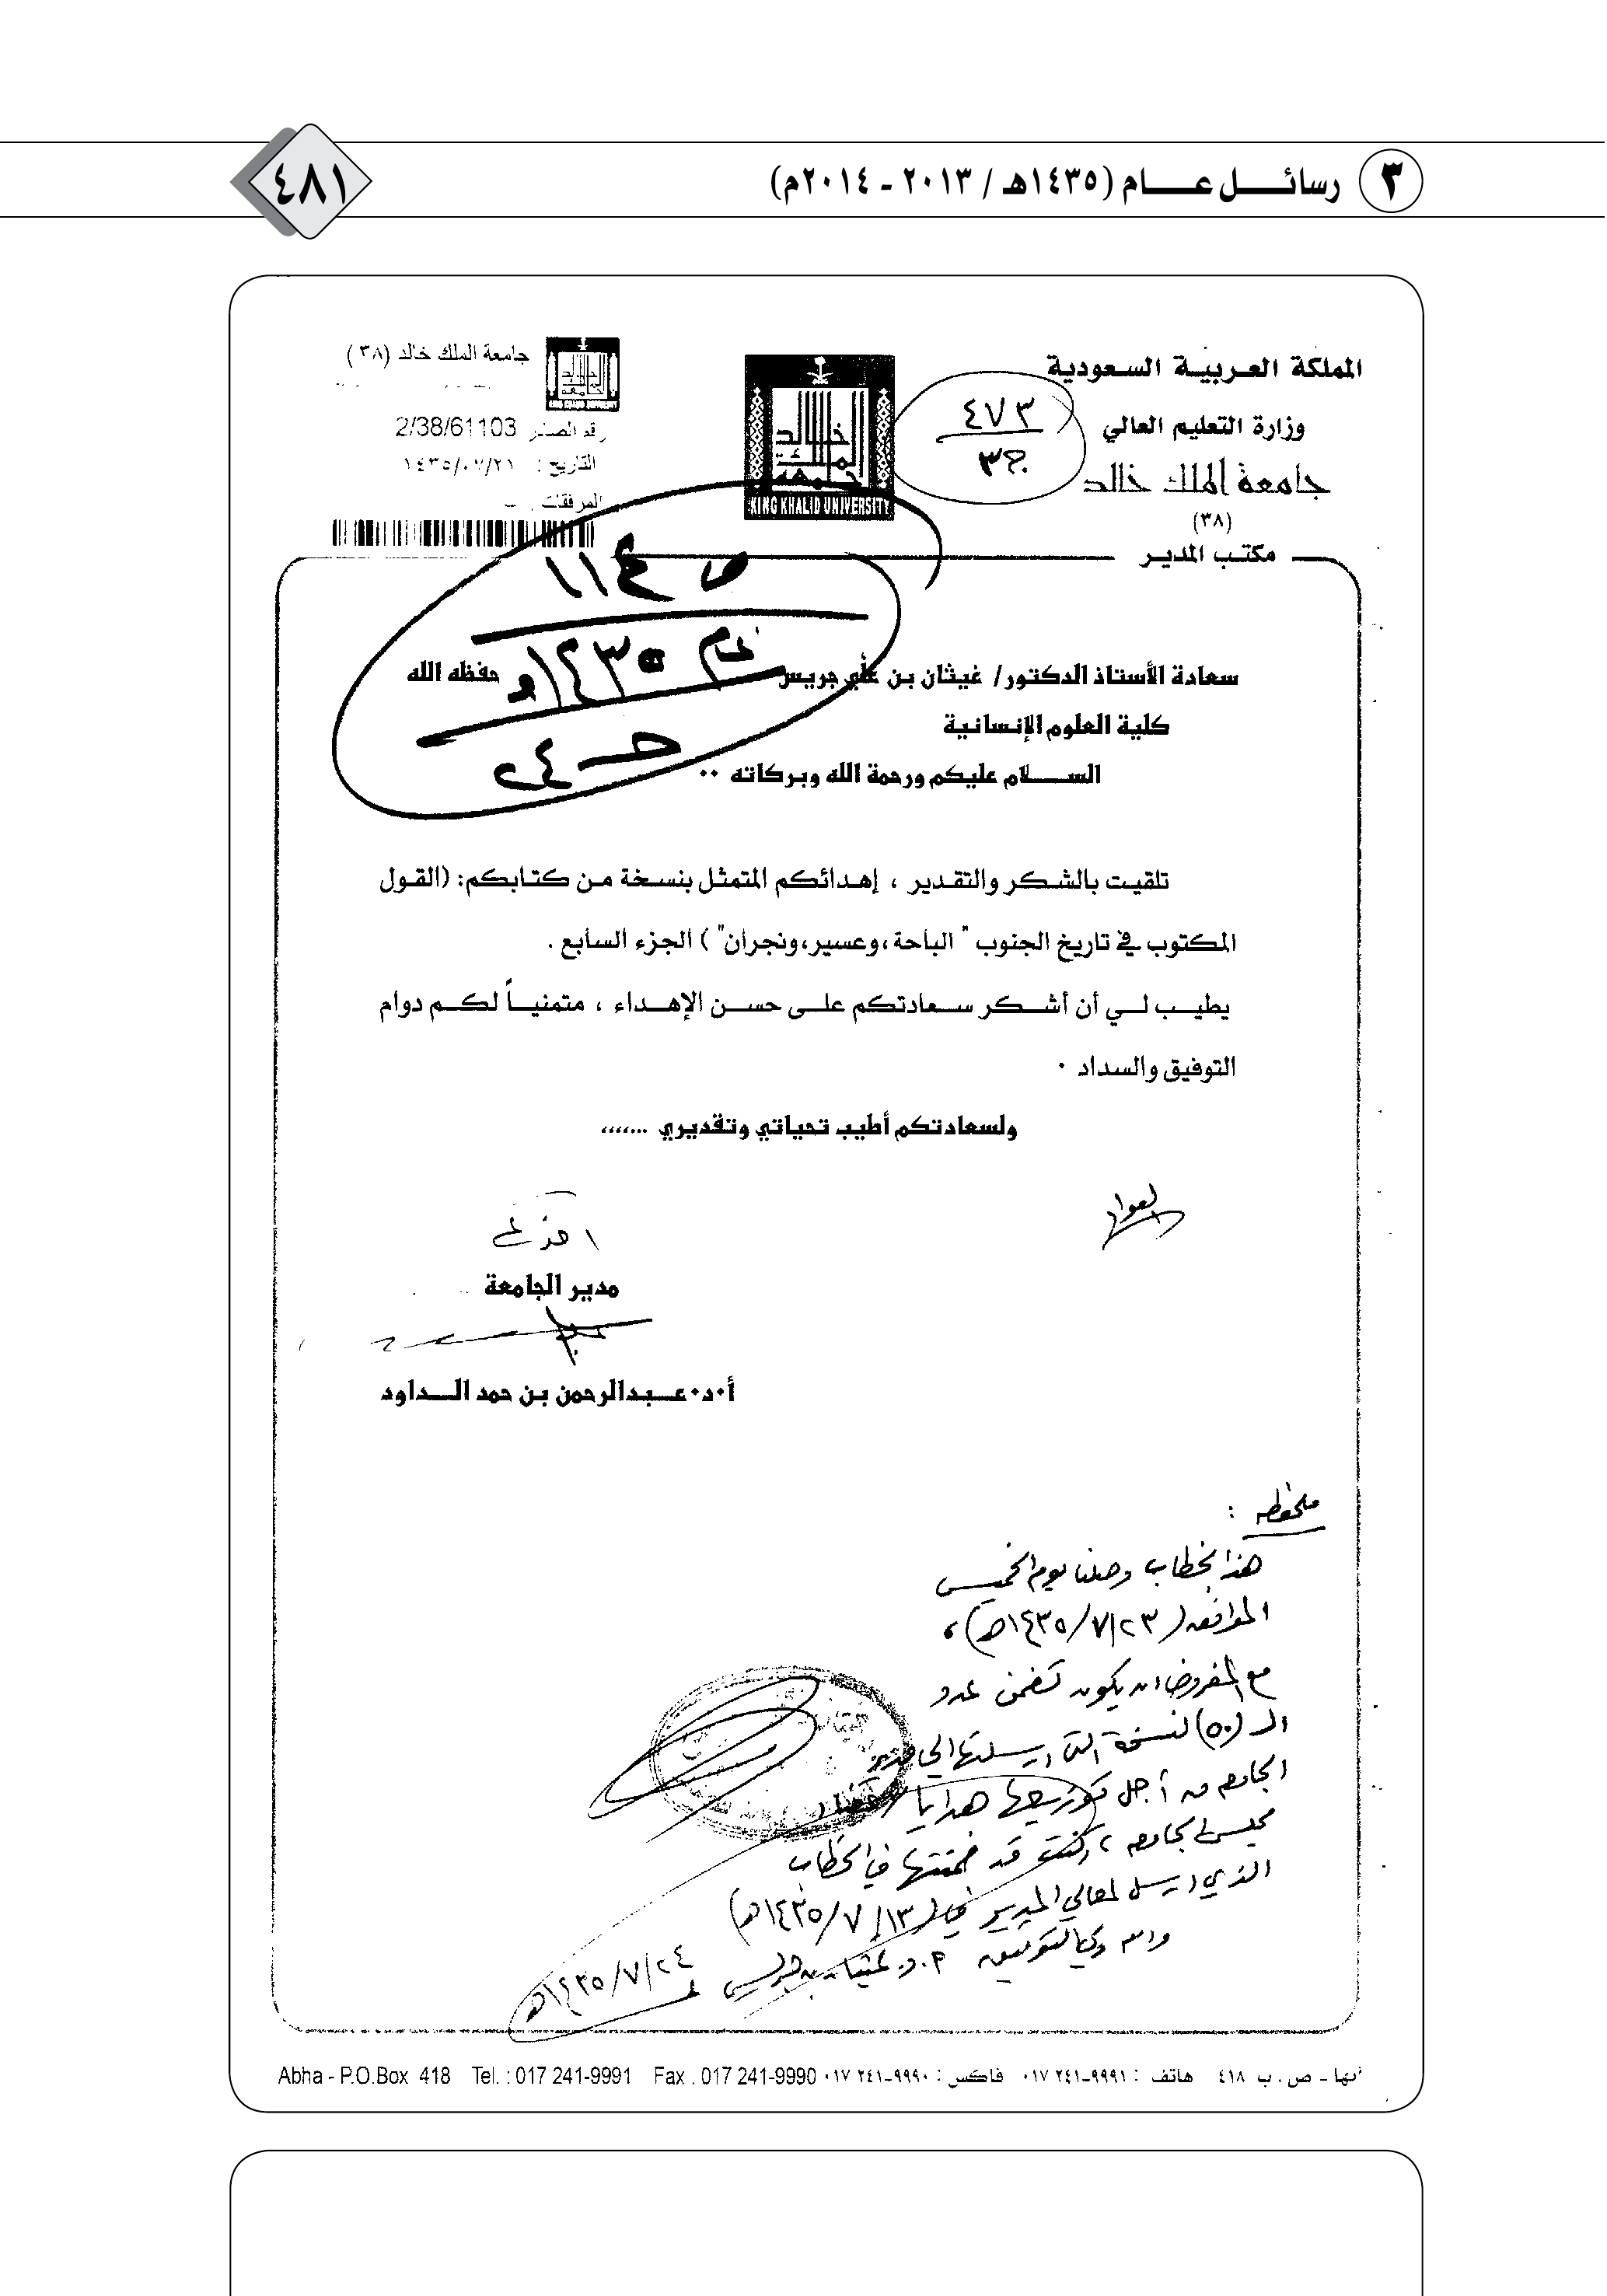 ٣ رسائل عام (١٤٣٥هـ / ٢٠١٣ - ٢٠١٤م)
٤٨١
المملكة العربية السعودية
وزارة التعليم العالي
جامعة الملك خالد
(٣٨)
مكتب المدير
٤٧٣
ج٣
KING KHALID UNIVERSITY
جامعة الملك خالد (٣٨)
رقم الصادر 2/38/61103
التاريخ : ١٤٣٥/٠٧/٢١
المرفقات
ص ١١٤
عام ١٤٣٥هـ
حـ ٢٤
سعادة الأستاذ الدكتور/ غيثان بن علي جريس حفظه الله
كلية العلوم الإنسانية
السلام عليكم ورحمة الله وبركاته ..
تلقيت بالشكر والتقدير ، إهدائكم المتمثل بنسخة من كتابكم: (القول
المكتوب في تاريخ الجنوب " الباحة ،وعسير،ونجران" ) الجزء السابع .
يطيب لي أن أشكر سعادتكم على حسن الإهداء ، متمنياً لكم دوام
التوفيق والسداد .
ولسعادتكم أطيب تحياتي وتقديري .......
مدير الجامعة
أ.د.عبدالرحمن بن حمد الداود
ملحوظه :
هذا الخطاب وصلنا يوم الخميس
الموافق (٢٣/٧/١٤٣٥هـ) ،
مع المفروض ان يكون تضمن عدد
الـ (٥٠) نسخة التي ارسلتها الى مدير
الجامعه من أجل توزيعها هدايا لأعضاء
مجلس الجامعه ، وكنت قد ضمنتها في الخطاب
الذي ارسل لمعالي المدير في (١٣/٧/١٤٣٥هـ)
والله ولي التوفيق أ.د. غيثان بن جريس
٢٤/٧/١٤٣٥هـ
أبها - ص . ب ٤١٨ هاتف : ٩٩٩١-٢٤١ ٠١٧ فاكس : ٩٩٩٠-٢٤١ ٠١٧ Abha - P.O.Box 418 Tel. : 017 241-9991 Fax . 017 241-9990